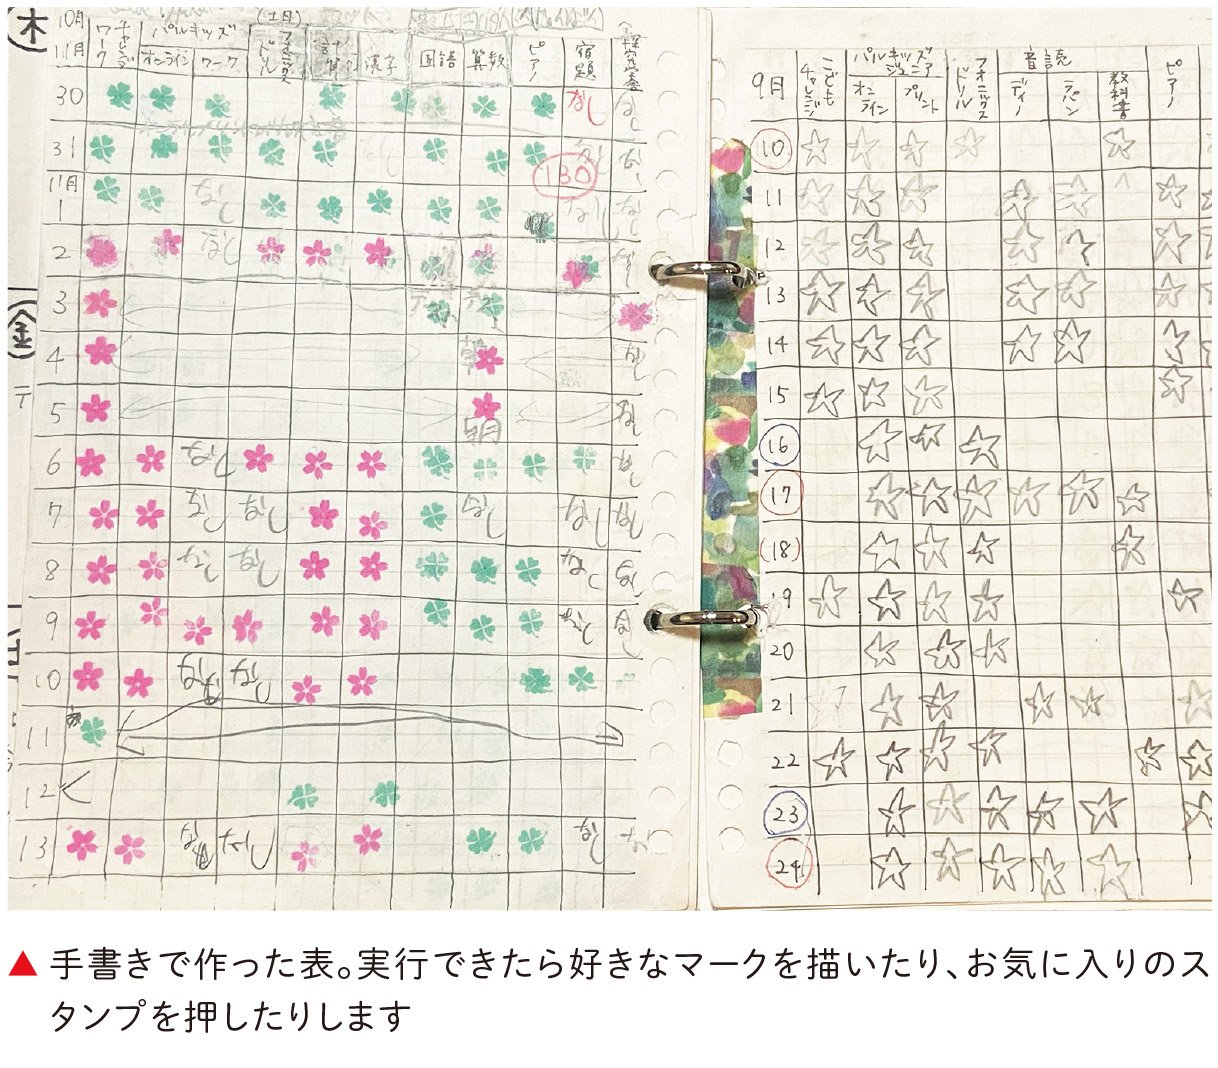 木
10月
11月
チャレンジ
ワーク
パルキッズ
オンライン
ワーク
(土月)
フォニックス
ドリル
計算
漢字
国語
算数
ピアノ
宿題
30
なし
なし
31
なし
130
11月
1
なし
なし
なし
2
なし
なし
3
金
4
なし
5
なし
明
6
なし
なし
7
なし
なし
なし
なし
なし
8
なし
なし
なし
なし
9
なし
なし
10
なし
なし
11
12
13
なし
なし
なし
9月
こども
チャレンジ
パルキッズ
ジュニア
オンライン
プリント
フォニックス
ドリル
音読
教科書
ピアノ
10
11
12
13
14
15
16
17
18
19
20
21
22
23
24
▲ 手書きで作った表。実行できたら好きなマークを描いたり、お気に入りのス
タンプを押したりします